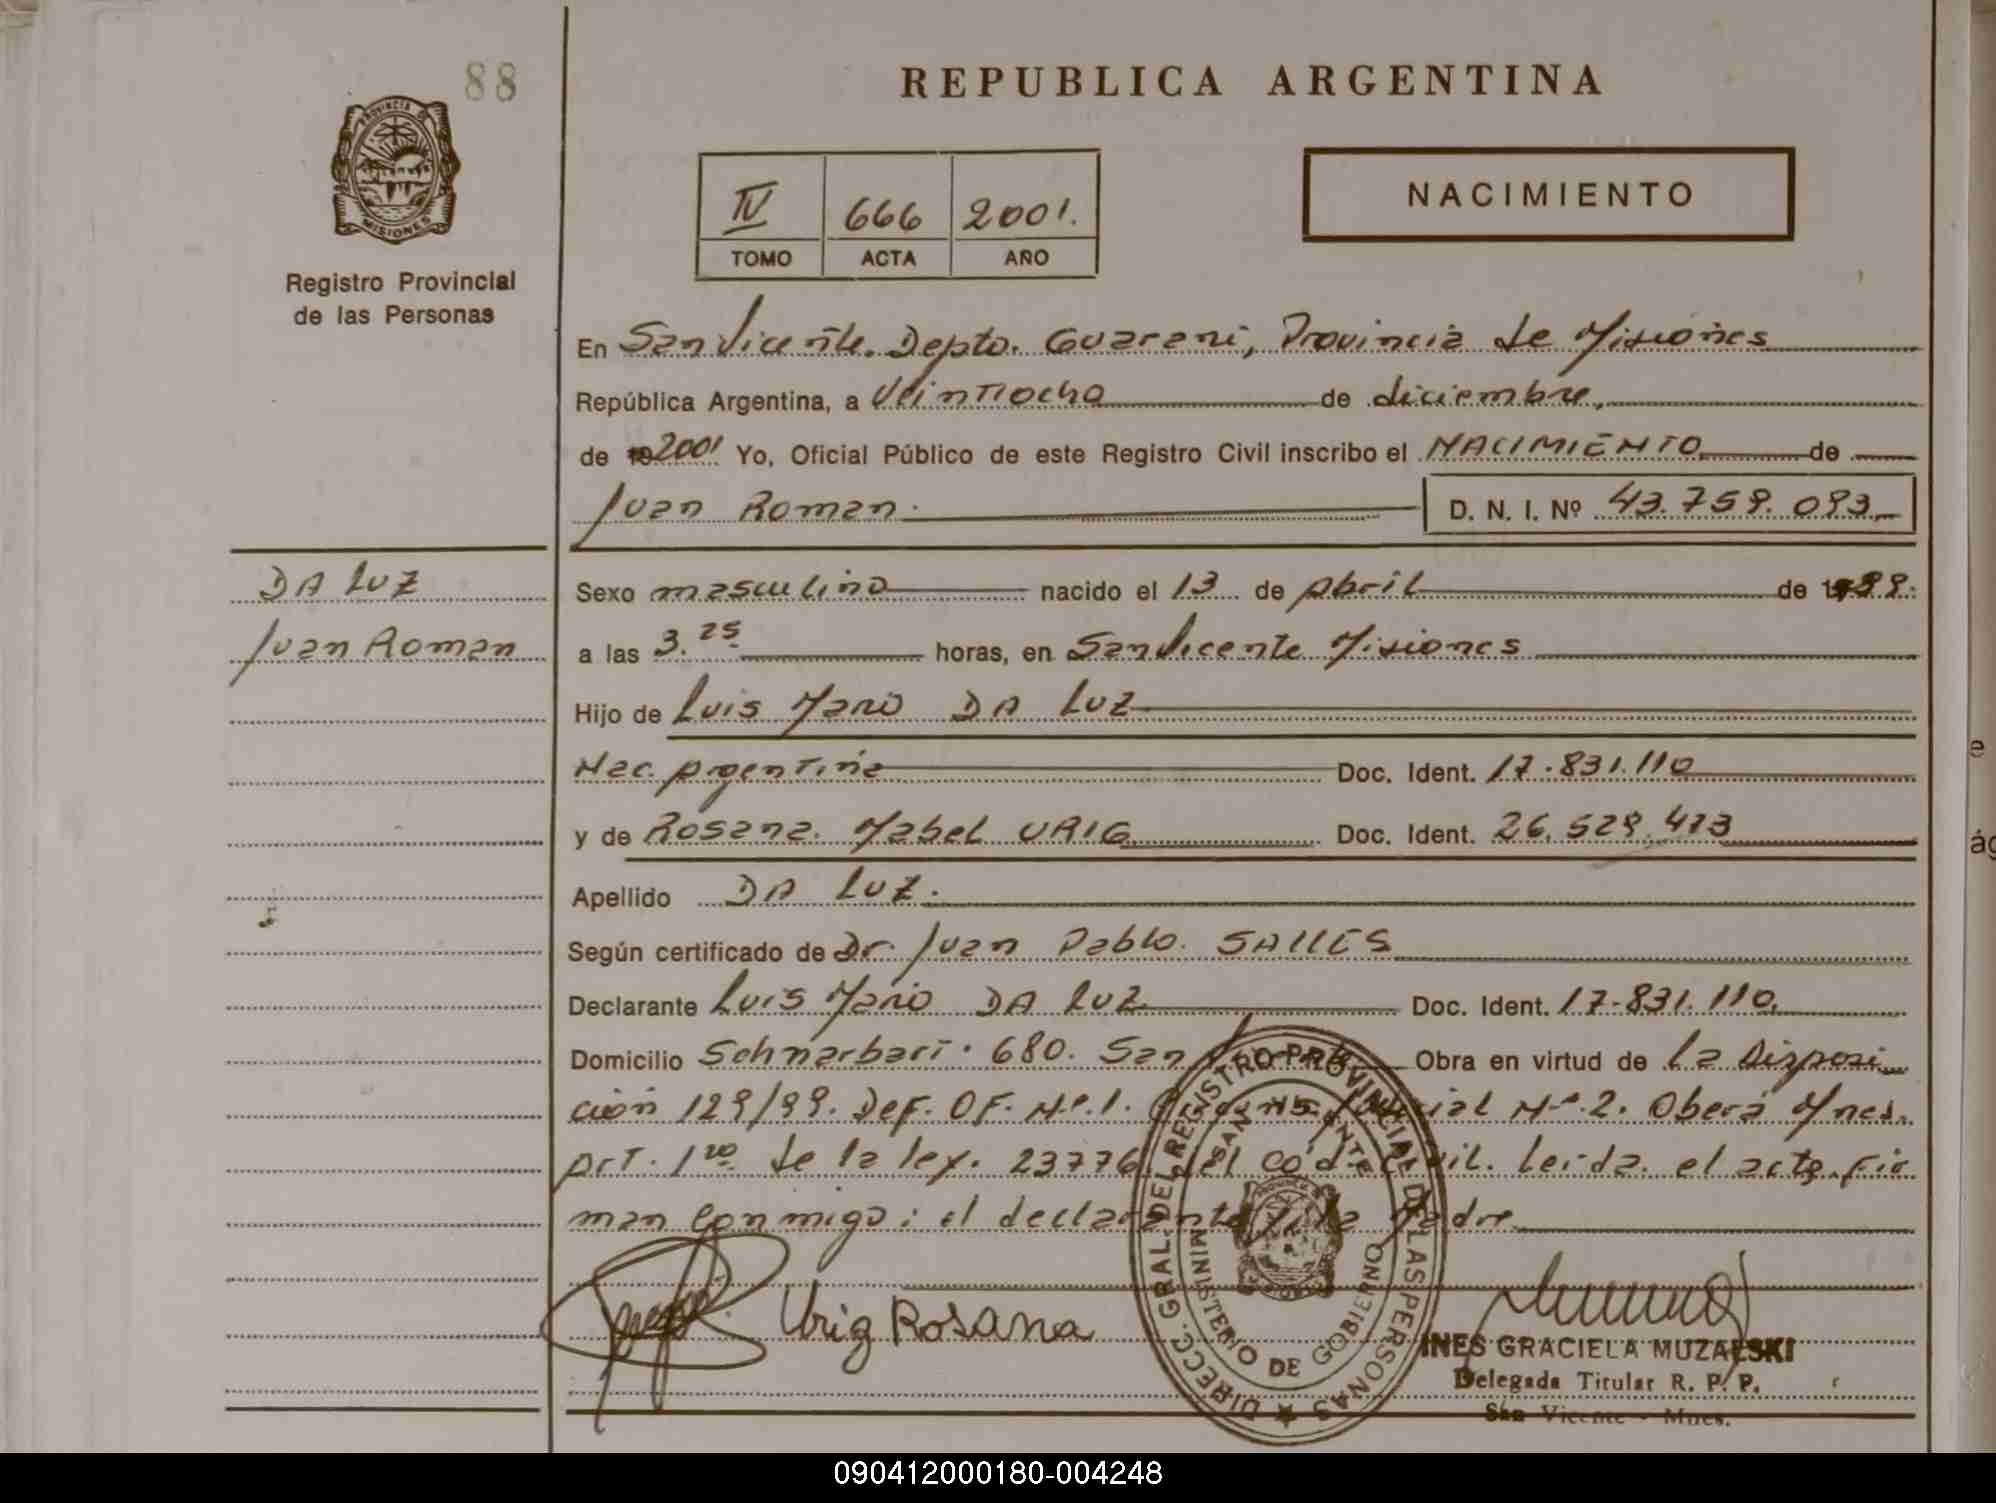 88
REPUBLICA ARGENTINA
PROVINCIA DE
MISIONES
Registro Provincial
de las Personas
IV 666 2001.
TOMO ACTA AÑO
NACIMIENTO
En San Vicente. Depto. Guarani, Provincia de Misiones
República Argentina, a Veintiocho de diciembre.
de 2001 Yo, Oficial Público de este Registro Civil inscribo el NACIMIENTO de
Juan Roman. D. N. I. Nº 43.759.093.
DA LUZ
Juan Roman
Sexo masculino nacido el 13 de Abril de 1999.
a las 3.25 horas, en San Vicente Misiones
Hijo de Luis Mario DA LUZ
Nac. Argentina Doc. Ident. 17.831.110
y de Rosana. Mabel URIG Doc. Ident. 26.529.413
Apellido DA LUZ.
Según certificado de Dr. Juan Pablo. SALLES
Declarante Luis Mario DA LUZ Doc. Ident. 17.831.110.
Domicilio 680. San Obra en virtud de La Disposi
ción 129/99. Def. OF. Nº.1. Nº.2. Obera Mnes.
Art. 1ro de la ley. 23776 del Cód. Civil. Leida. el acta. fir
man conmigo: el declarante y la Madre.
Urig Rosana
DIRECC. GRAL. DEL REGISTRO PROVINCIAL DE LAS PERSONAS
SAN VICENTE
MINISTERIO DE GOBIERNO
INES GRACIELA MUZALSKI
Delegada Titular R. P. P.
San Vicente - Mnes.
090412000180-004248